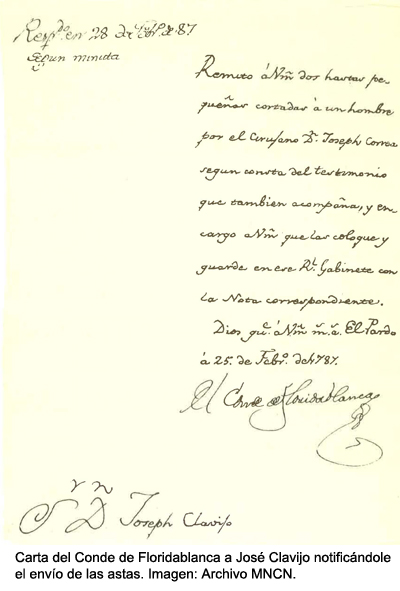 Resp.do en 28 de Febr.o de 87
segun minuta
Remito á Vm dos hastas pe-
queñas cortadas à un hombre
por el Cirujano Dn. Joseph Correa
segun consta del testimonio
que tambien acompaña, y en-
cargo a Vm que las coloque y
guarde en ese Rl. Gabinete con
la Nota correspondiente.
Dios gue. á Vm ms. as. El Pardo
á 25. de Febro. de 1787.
El Conde de Floridablanca
Sr. Dn. Joseph Clavijo
Carta del Conde de Floridablanca a José Clavijo notificándole
el envío de las astas. Imagen: Archivo MNCN.